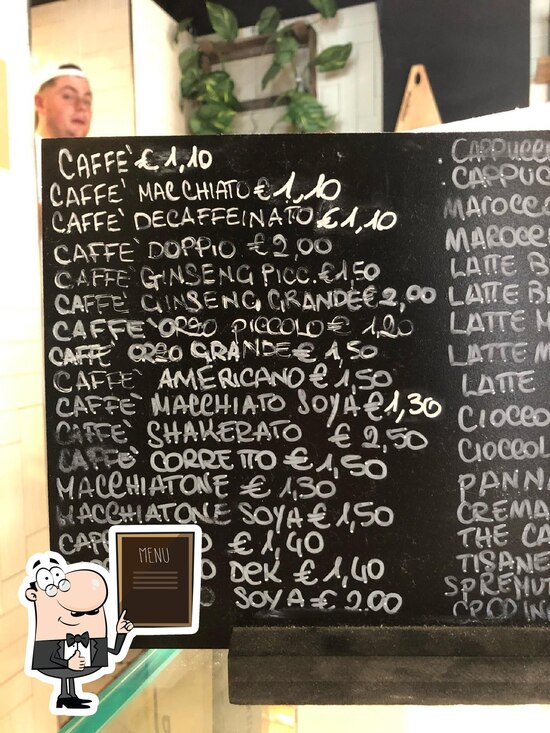 CAFFE' € 1,10
CAFFE' MACCHIATO € 1,10
CAFFE' DECAFFEINATO € 1,10
CAFFE' DOPPIO € 2,00
CAFFE' GINSENG PICC. € 1,50
CAFFE' GINSENG GRANDE € 2,00
CAFFE' ORZO PICCOLO € 1,20
CAFFE' ORZO GRANDE € 1,50
CAFFE' AMERICANO € 1,50
CAFFE' MACCHIATO SOYA € 1,30
CAFFE' SHAKERATO € 2,50
CAFFE' CORRETTO € 1,50
MACCHIATONE € 1,30
MACCHIATONE SOYA € 1,50
CAPP € 1,40
DEK € 1,40
SOYA € 2.00
MENU
CAPPUCC
CAPPUC
MAROCC
MAROCC
LATTE B
LATTE B
LATTE M
LATTE M
LATTE
CIOCCO
CIOCCOL
PANN
CREMA
THE CA
TISANE
SPREMU